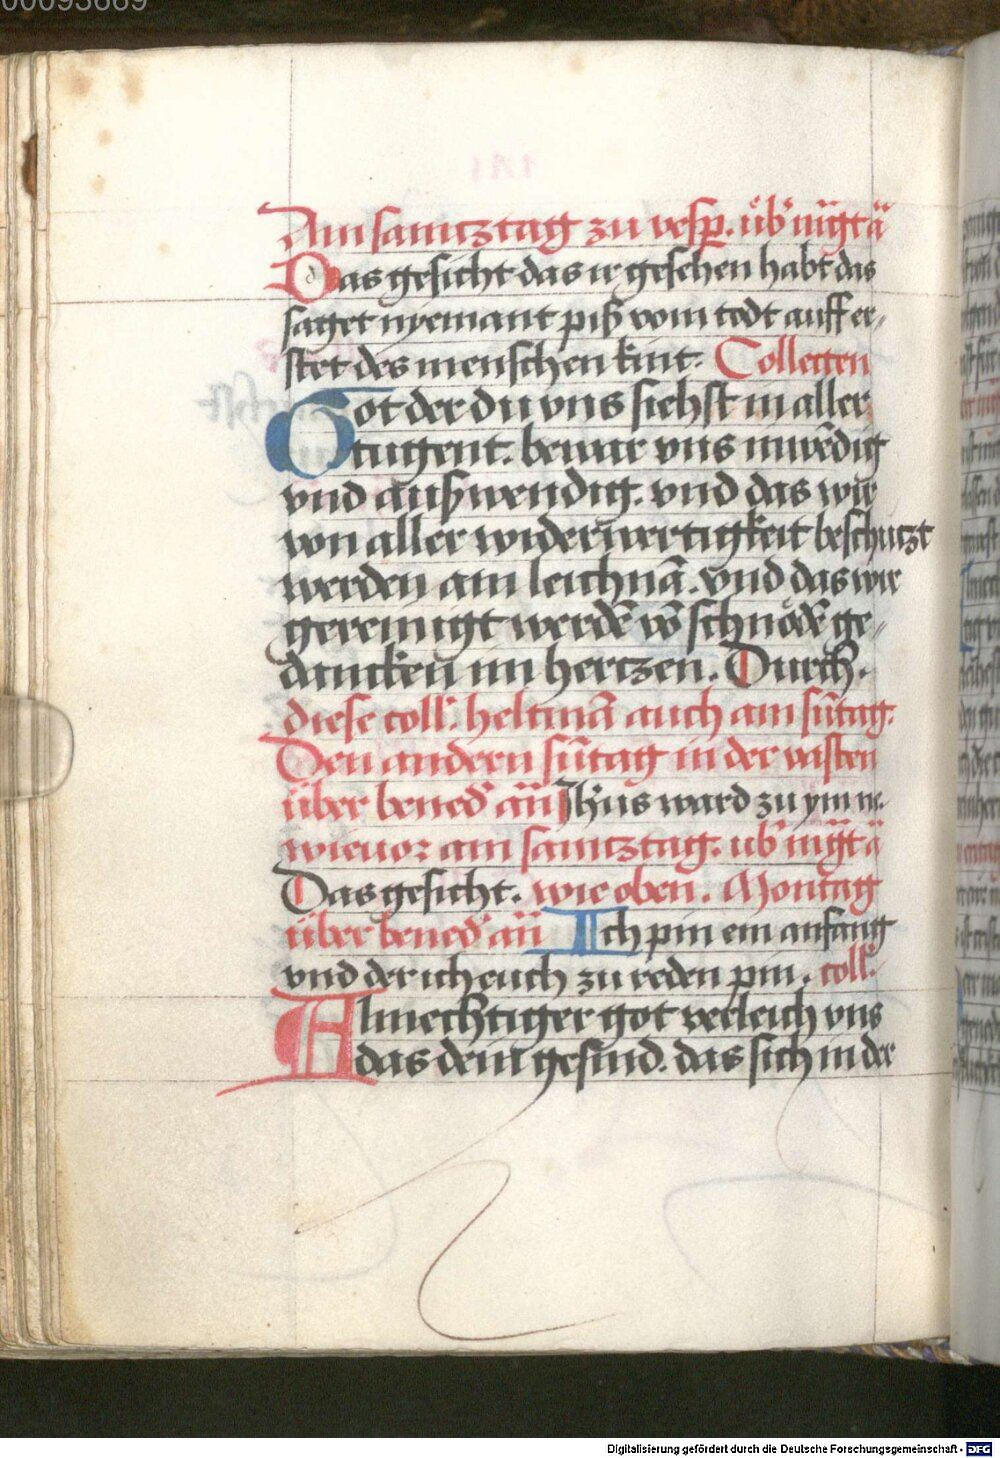 00093669
Am samtztag zu vesp. üb' mg̅t a̅
Das gesicht das ir gesehen habt das
saget nyemant piß vom todt auff er„
stet des menschen kint. Collecten
Got der du vns siehst in aller
tugent. bewar vns inwe̅dig
vnd außwendig. vnd das wir
von aller widerwertigkeit beschutzt
werden am leichna̅. vnd das wir
gereinigt werde̅ vo̅ schnöde̅ ge„
dancken im hertzen. Durch.
diese coll'. helt ma̅ auch am su̅tag.
Den andern su̅tag in der vasten
über bened' an̅ Jh̅us ward zu ym ne.
wieuor am samtztag. üb' mg̅t a̅
Das gesicht. wie oben. Montag
über bened' an̅ Ich pin ein anfang
vnd der ich euch zu reden pin. coll'.
Almechtiger got verleich vns
das dein gesind. das sich in der
Digitalisierung gefördert durch die Deutsche Forschungsgemeinschaft - DFG